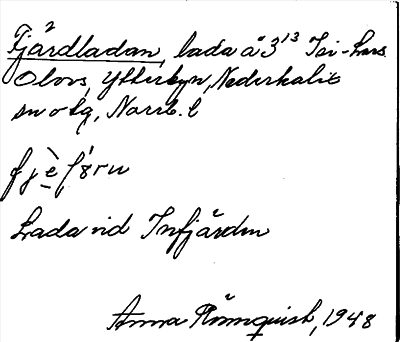 Fjärdladan, lada å 3¹³ Isi-Lars
Olovs, Ytterbyn, Nederkalix
sn o tg, Norrb. l
Lada vid Infjärden
Anna Rönnquist, 1948